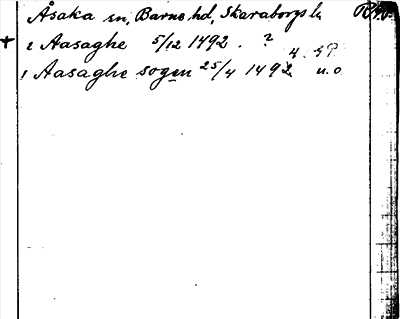 Åsaka sn, Barne hd, Skaraborgs l.
+ 2 Aasaghe 5/12 1492. ?
1 Aasaghe sogen 25/4 1492 u.o